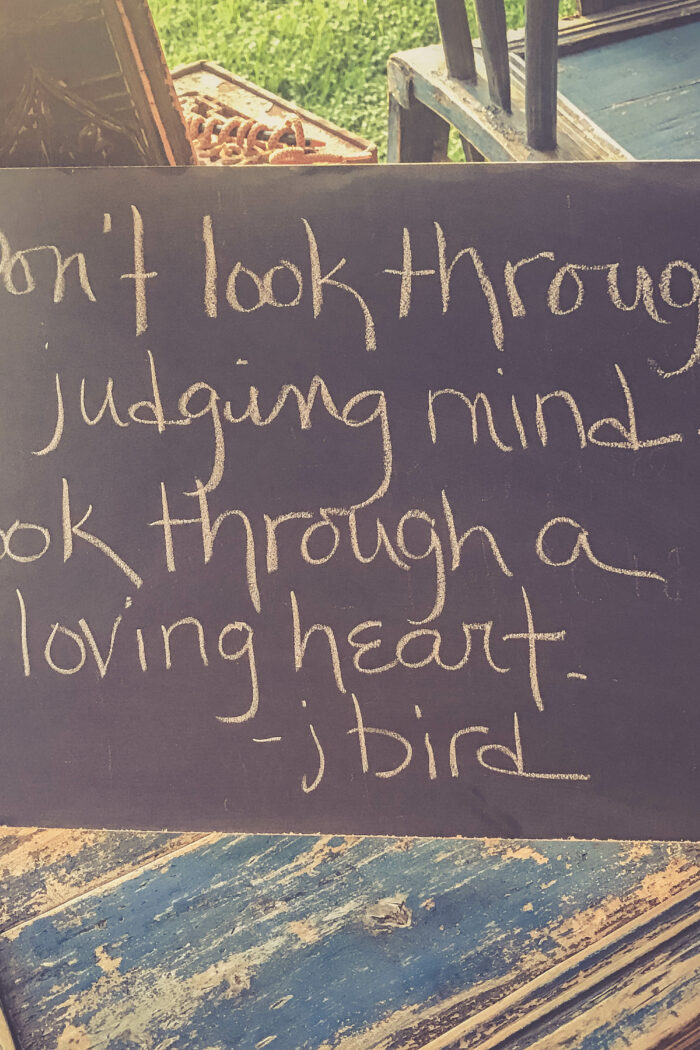 Don't look throug
judging mind.
ook through a
loving heart.
-j bird